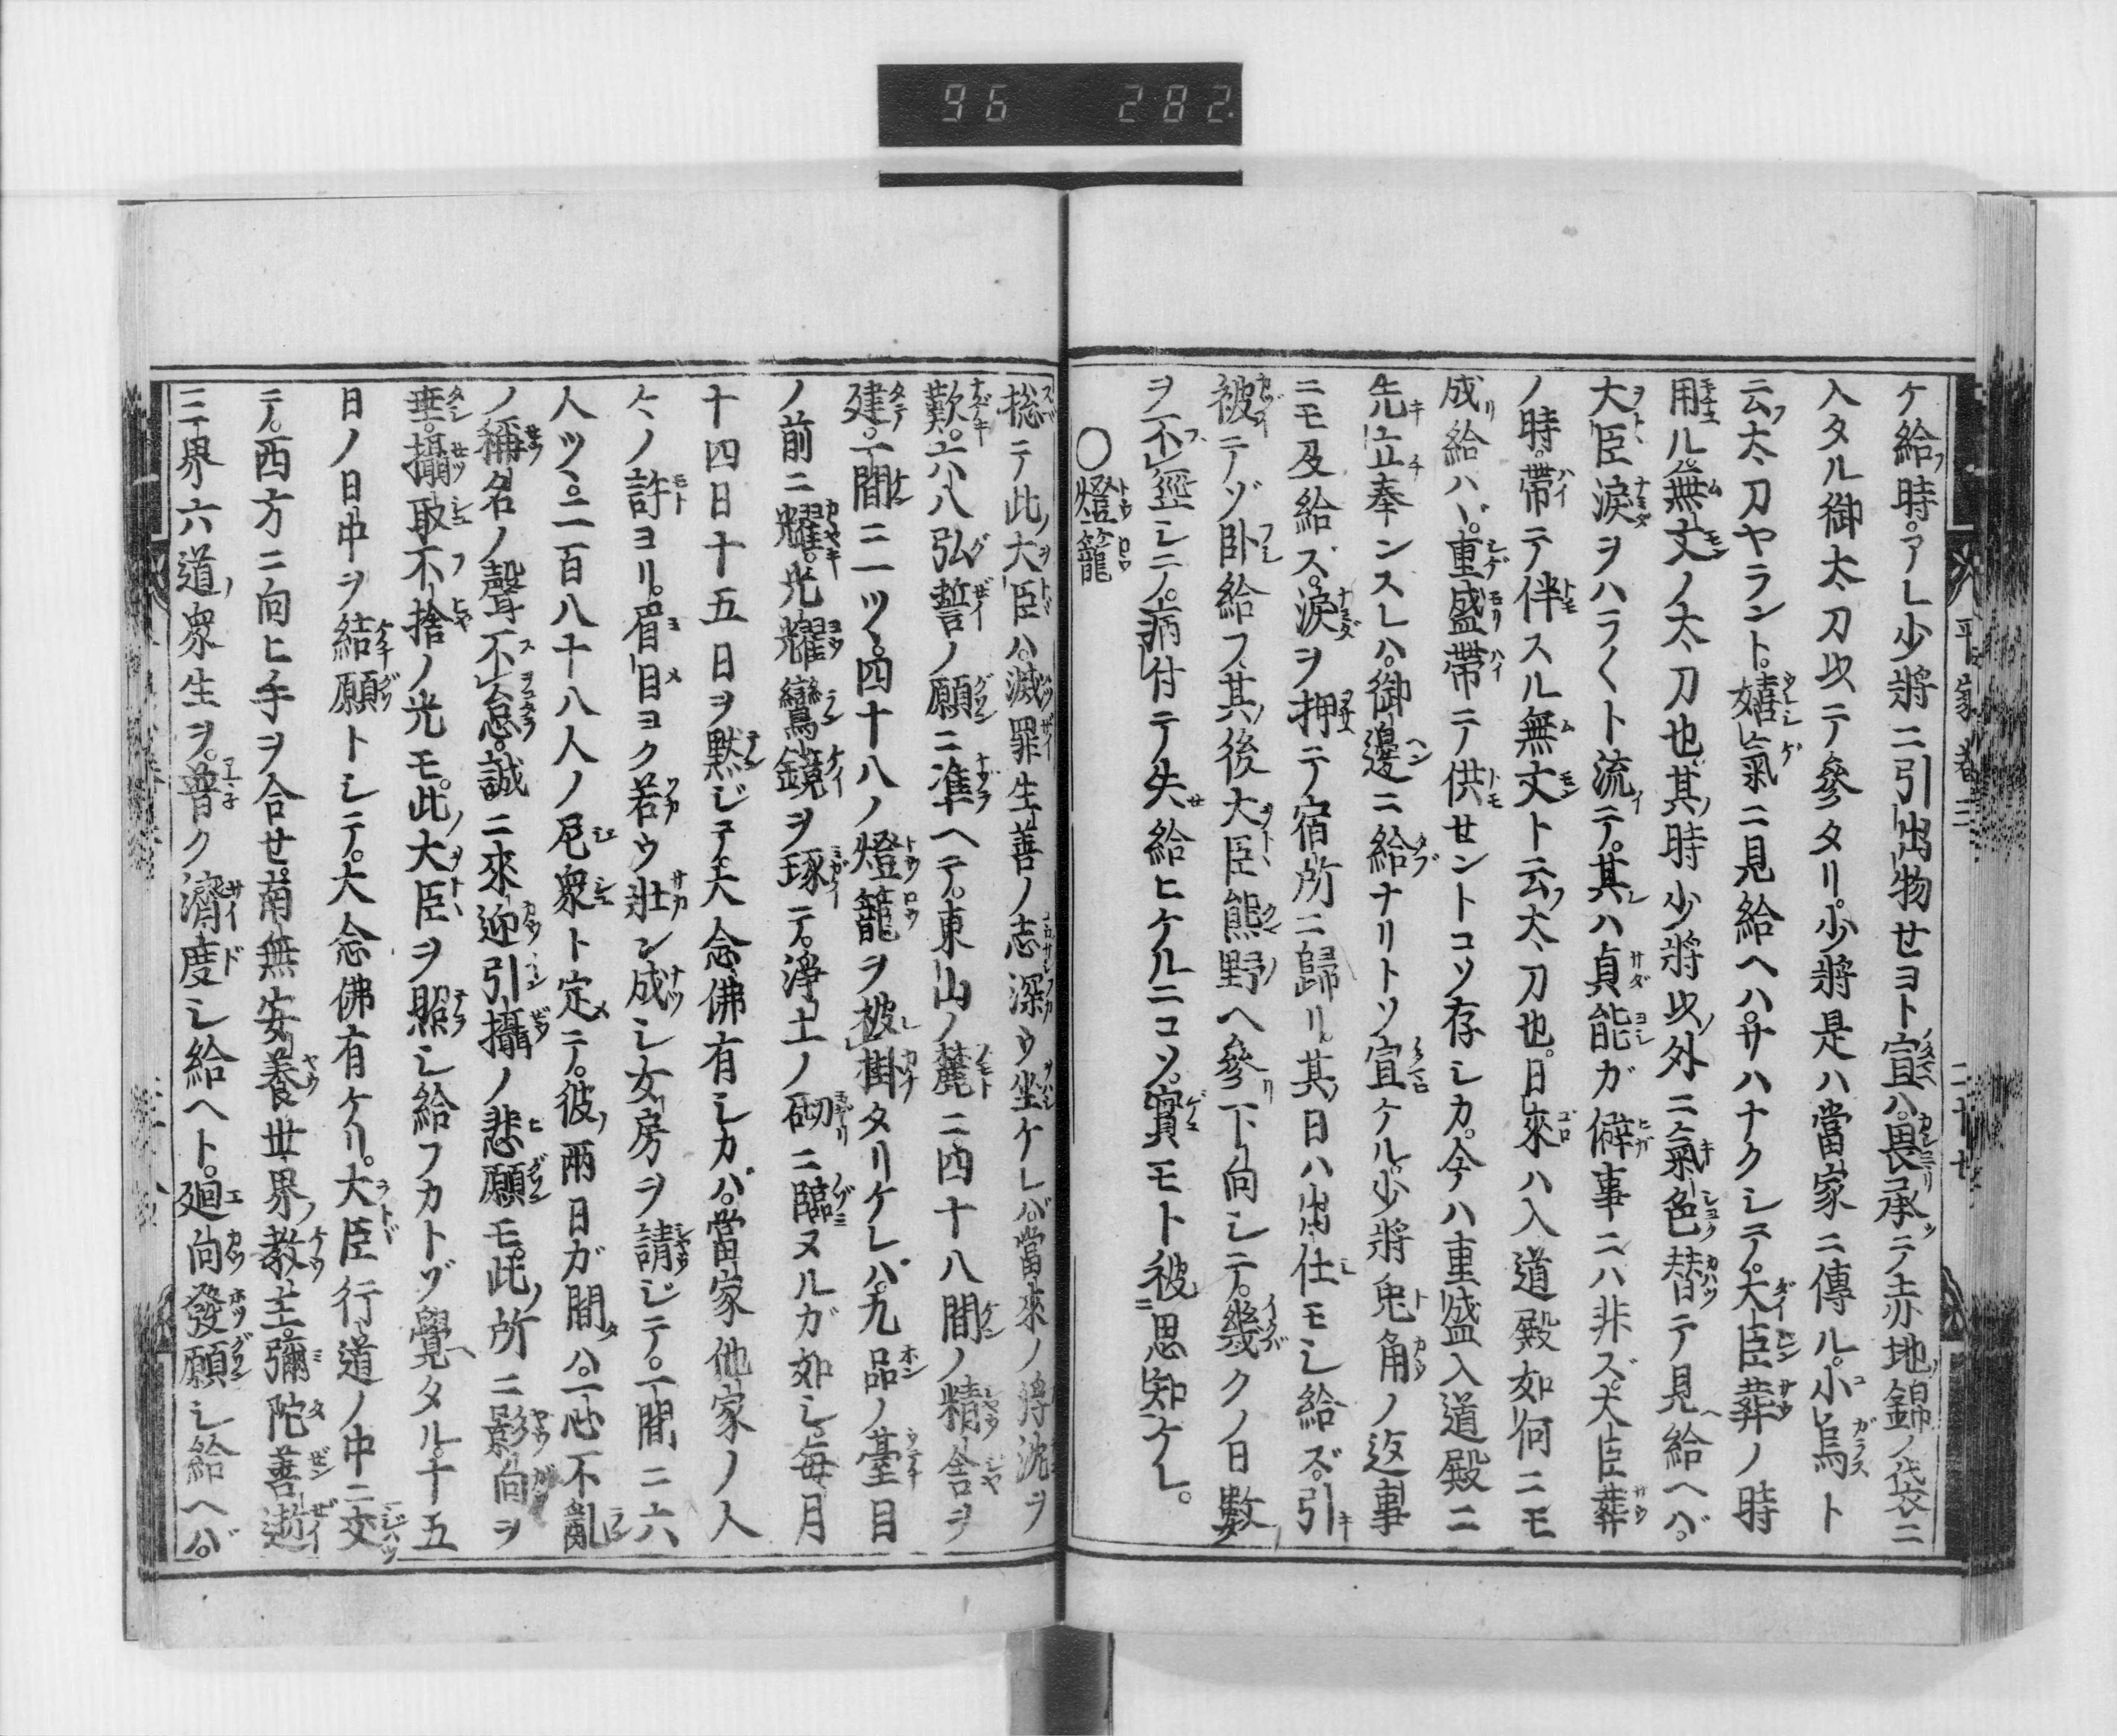 96 282
平家巻三 二十七
ケ給時。アレ少將ニ引出物セヨト宣ハ。畏承テ赤地錦ノ袋ニ
入タル御太刀以テ參タリ。少將是ハ當家ニ傳ル。小烏ト
云太刀ヤラント。嬉氣ニ見給ヘハ。サハナクシテ。大臣葬ノ時
用ル。無文ノ太刀也。其時少將以外ニ氣色替テ見給ヘバ。
大臣涙ヲハラ〱ト流テ。其ハ貞能ガ僻事ニハ非ズ。大臣葬
ノ時。帶テ伴スル無文ト云太刀也。日來ハ入道殿如何ニモ
成給ハヾ。重盛帶テ供セントコソ存シカ。今ハ重盛入道殿ニ
先立奉ンスレハ。御邊ニ給ナリトソ宣ケル。少將兎角ノ返事
ニモ及給ズ。涙ヲ押テ宿所ニ歸リ。其日ハ出仕モシ給ズ。引
被テゾ卧給フ。其後大臣熊野ヘ參下向シテ。幾クノ日數
ヲ不經シテ。病付テ失給ヒケルニコソ。實モト被思知ケレ。
〇燈籠
捴テ此大臣ハ。滅罪生善ノ志深ウ坐ケレバ。當來ノ浮沈ヲ
歎。六八弘誓ノ願ニ準ヘテ。東山ノ麓ニ四十八間ノ精舎ヲ
建。一間ニ一ツヽ。四十八ノ燈籠ヲ被掛タリケレバ。九品ノ臺目
ノ前ニ耀。光耀鸞鏡ヲ琢テ。淨土ノ砌ニ臨ヌルガ如シ。毎月
十四日十五日ヲ點ジテ。大念佛有シカバ。當家他家ノ人
々ノ許ヨリ。眉目ヨク若ウ壯ン成シ女房ヲ請ジテ。一間ニ六
人ツヽ。二百八十八人ノ尼衆ト定テ。彼兩日ガ間ハ。一心不亂
ノ稱名ノ聲不怠。誠ニ來迎引攝ノ悲願モ。此所ニ影向ヲ
垂。攝取不捨ノ光モ。此大臣ヲ照シ給フカトゾ覺タル。十五
日ノ日中ヲ結願トシテ。大念佛有ケリ。大臣行道ノ中ニ交
テ。西方ニ向ヒ手ヲ合セ。南無安養世界教主。彌陀善逝
三界六道衆生ヲ。普ク濟度シ給ヘト。廻向發願シ給ヘバ。